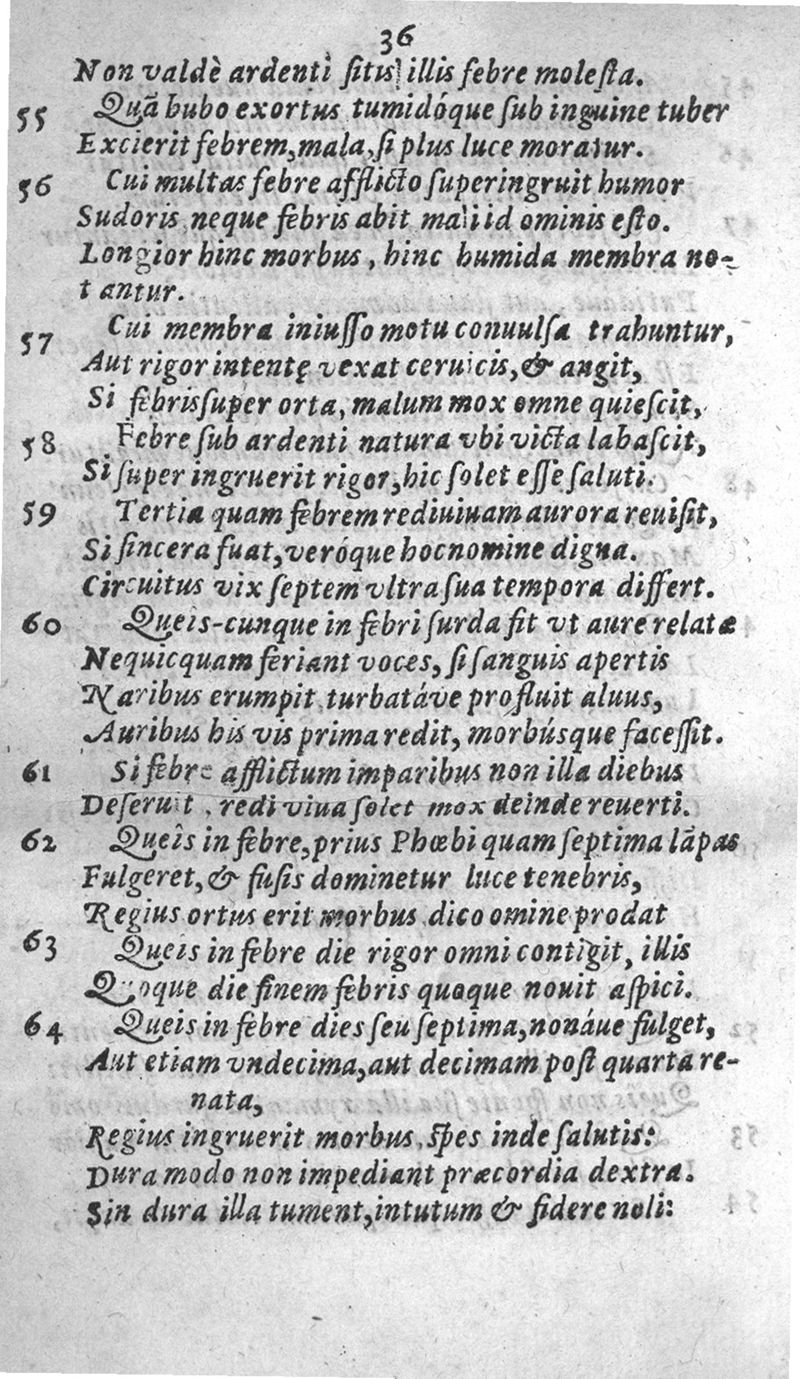 36
Non valdè ardenti sitis illis febre molesta.
55 Quā bubo exortus tumidóque sub inguine tuber
Excierit febrem, mala, si plus luce moratur.
56 Cui multas febre afflicto superingruit humor
Sudoris neque febris abit mali id ominis esto.
Longior hinc morbus, hinc humida membra no-
tantur.
57 Cui membra iniusso motu conuulsa trahuntur,
Aut rigor intentę vexat ceruicis, & angit,
Si febris super orta, malum mox omne quiescit,
58 Febre sub ardenti natura vbi victa labascit,
Si super ingruerit rigor, hic solet esse saluti.
59 Tertia quam febrem rediuiuam aurora reuisit,
Si sincera fuat, veróque hoc nomine digna.
Circuitus vix septem vltra sua tempora differt.
60 Queis-cunque in febri surda sit vt aure relatæ
Nequicquam feriant voces, si sanguis apertis
Naribus erumpit turbatáve profluit aluus,
Auribus his vis prima redit, morbúsque facessit.
61 Si febre afflictum imparibus non illa diebus
Deseruit, rediviua solet mox deinde reuerti.
62 Queîs in febre, prius Phœbi quam septima lāpas
Fulgeret, & fusis dominetur luce tenebris,
Regius ortus erit morbus dico omine prodat
63 Queis in febre die rigor omni contigit, illis
Quoque die finem febris quoque nouit aspici.
64 Queis in febre dies seu septima, nonáue fulget,
Aut etiam vndecima, aut decimam post quarta re-
nata,
Regius ingruerit morbus, spes inde salutis:
Dura modo non impediant præcordia dextra.
Sin dura illa tument, intutum & fidere noli: